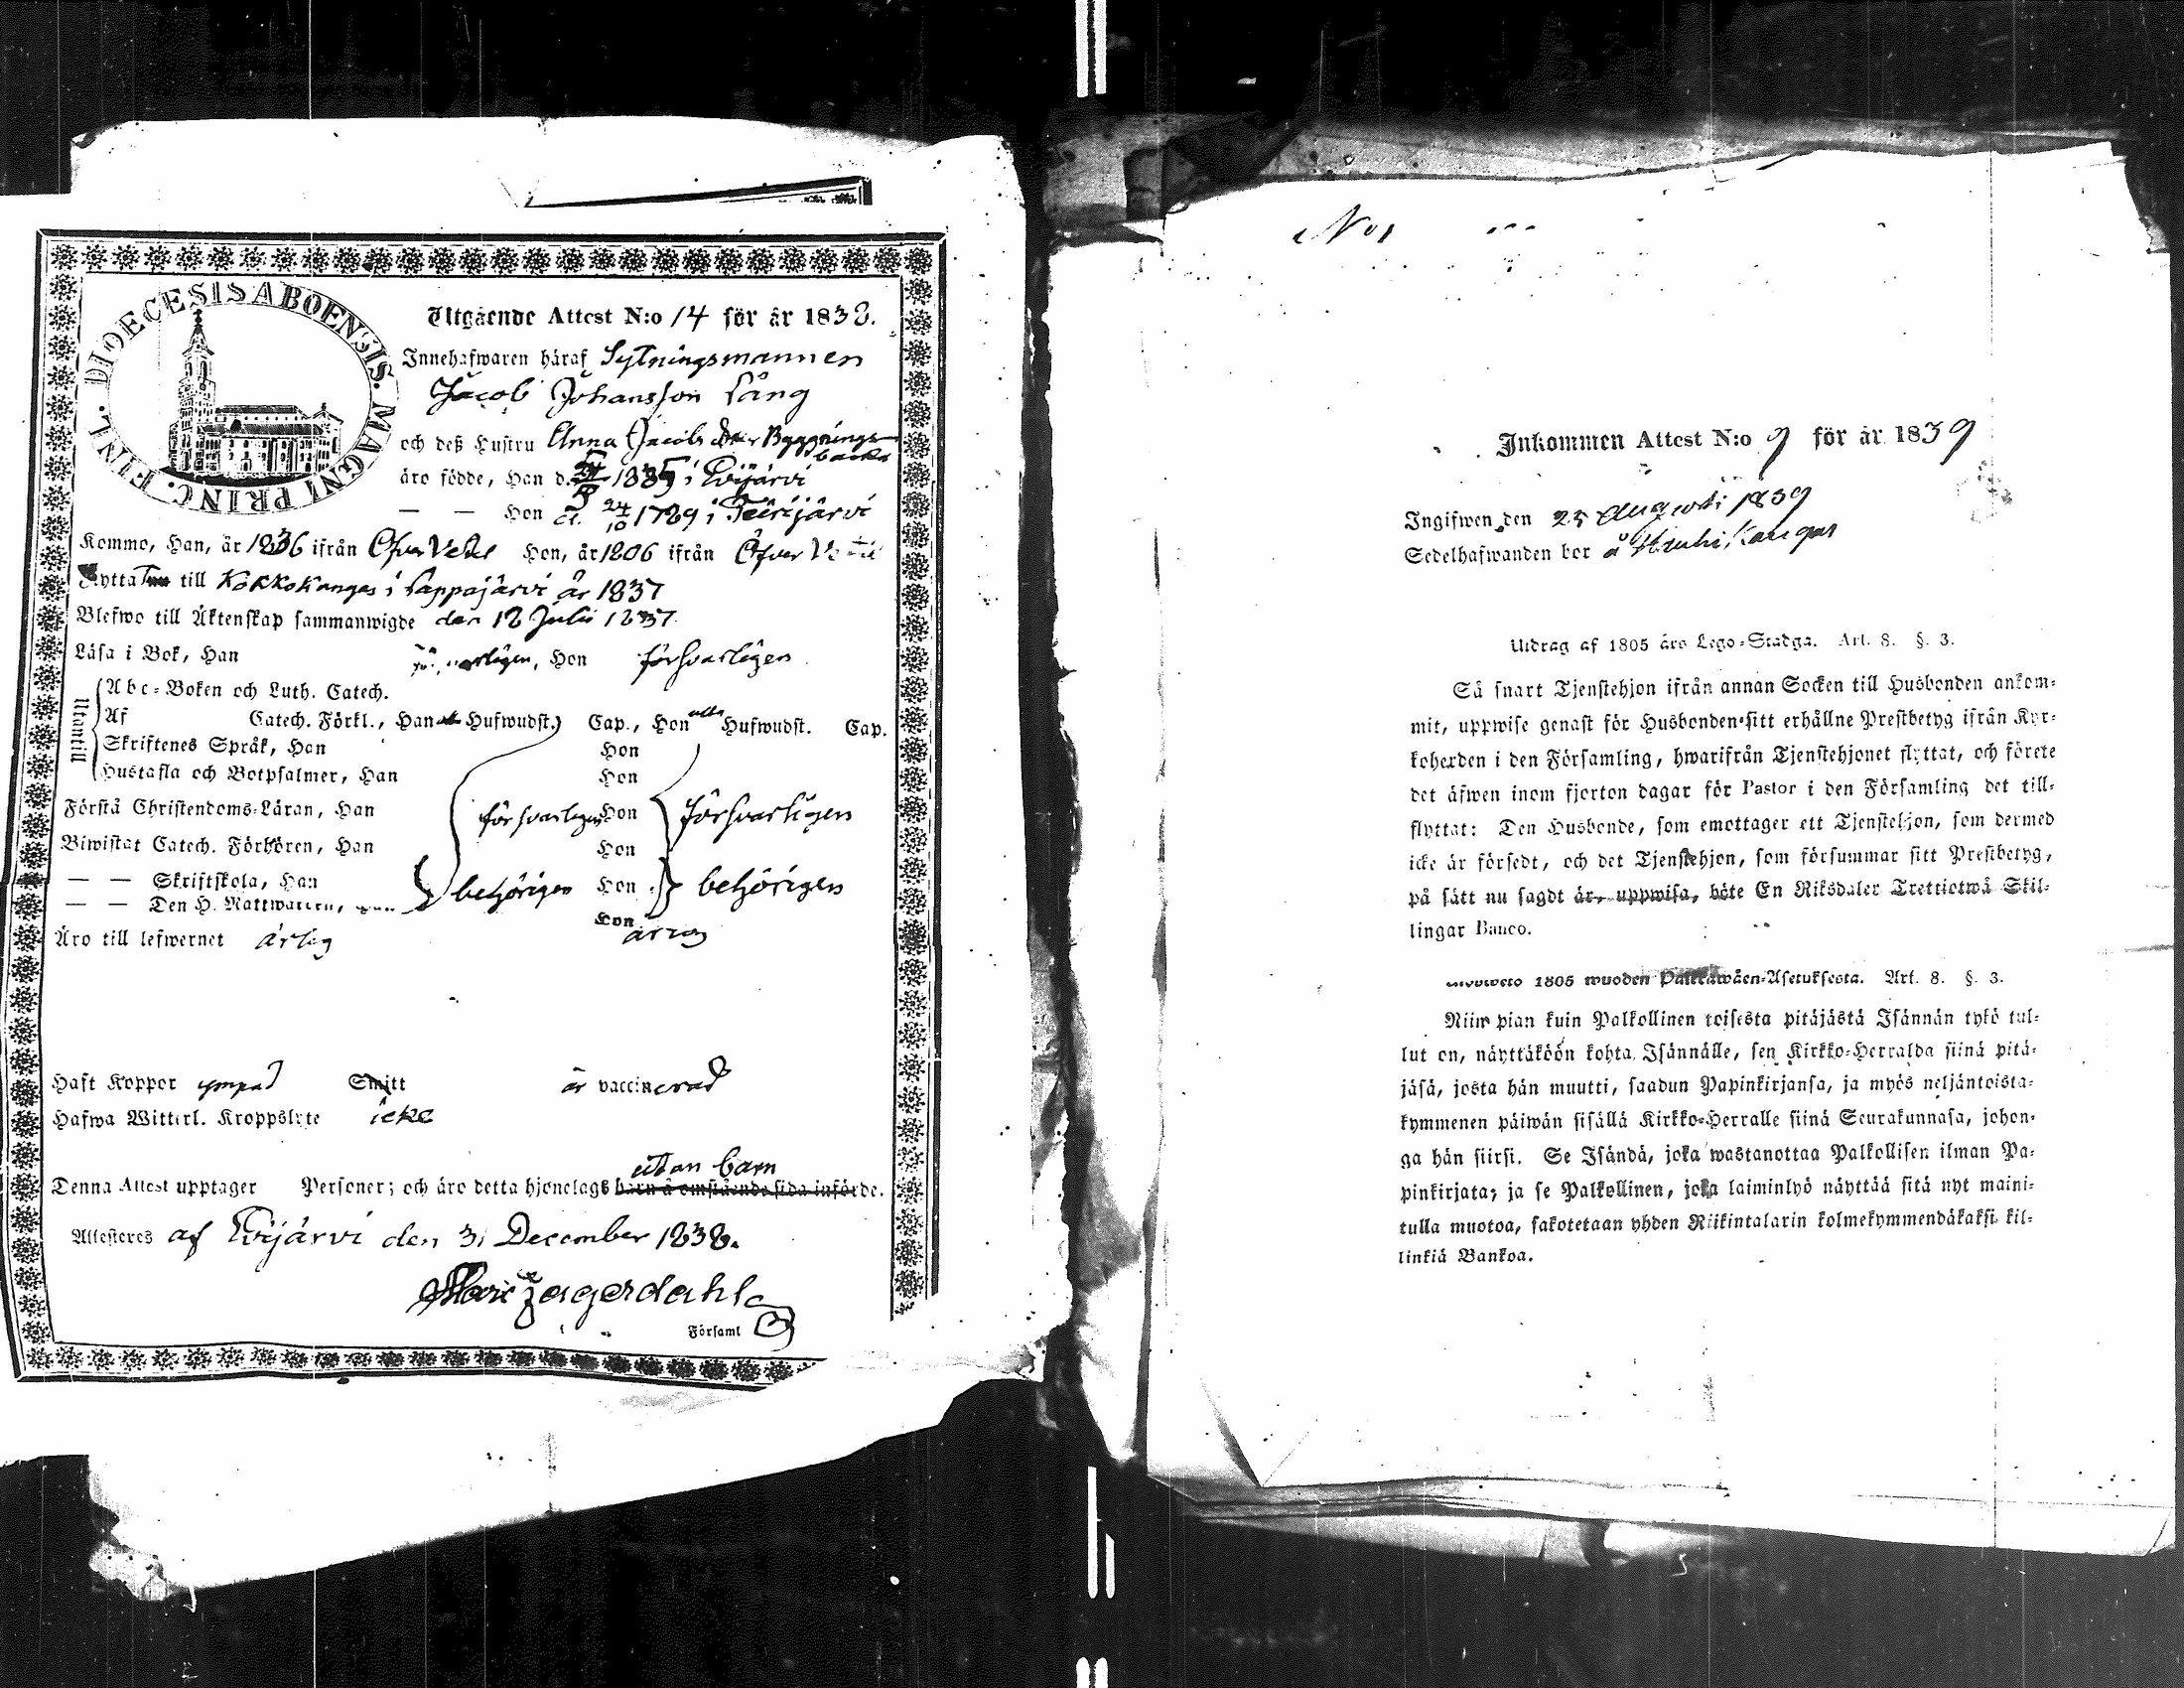 DIOECESIS ABOENSIS. MAGNI PRINC. FINL.
Utgående Attest N:o 14 för år 1838.
Innehafwaren häraf Sytningsmannen
Jacob Johansson Lång
och deß Hustru Anna Jacobs Dtr Byggnings
backa
äro födde, Han d. i Evijärvi
— — Hon d. 24/10 1789 i Terijärvi
Kommo, Han, år 1836 ifrån Öfver Vetil Hon, år 1806 ifrån Öfver Vetil
Flytta till Kokkokangas i Lappajärvi år 1837
Blefwo till Äktenskap sammanwigde den 12 Julii 1837.
Läsa i Bok, Han försvarligen, Hon försvarligen
Utantill
Abc-Boken och Luth. Catech.
Af Catech. Förkl., Han Hufwudst. Cap., Hon alla Hufwudst. Cap.
Skriftenes Språk, Han Hon
Hustafla och Botpsalmer, Han Hon
Förstå Christendoms-Läran, Han försvarligen Hon försvarligen
Biwistat Catech. Förhören, Han Hon
— — Skriftskola, Han behörigen Hon behörigen
— — Den H. Nattwarden, Han Hon
Äro till lefwernet ärlig
Haft Koppor ympad Smitt är vaccinerad
Hafwa Witterl. Kroppslyte icke
utan barn
Denna Attest upptager Personer; och äro detta hjonelags barn å omstående sida införde.
Attesteras af Evijärvi den 31 December 1838.
Zagerdahl
Församl
Inkommen Attest N:o 9 för år 1839
Ingifwen den 25 Augusti 1839
Sedelhafwanden bor å
Utdrag af 1805 års Lego-Stadga. Art. 8. §. 3.
Så snart Tjenstehjon ifrån annan Socken till Husbonden ankom-
mit, uppwise genast för Husbonden sitt erhållne Prestbetyg ifrån Kyr-
koherden i den Församling, hwarifrån Tjenstehjonet flyttat, och förete
det äfwen inom fjorton dagar för Pastor i den Församling det till-
flyttat: Den Husbonde, som emottager ett Tjenstehjon, som dermed
icke är försedt, och det Tjenstehjon, som försummar sitt Prestbetyg,
på sätt nu sagdt är, uppwisa, böte En Riksdaler Trettiotwå Skil-
lingar Banco.
1805 wuoden Palkkawäen-Asetuksesta. Art. 8. §. 3.
Niin pian kuin Palkollinen toisesta pitäjästä Isännän tykö tul-
lut on, näyttäköön kohta Isännälle, sen Kirkko-Herralda siinä pitä-
jäsä, josta hän muutti, saadun Papinkirjansa, ja myös neljäntoista-
kymmenen päiwän sisällä Kirkko-Herralle siinä Seurakunnasa, johon-
ga hän siirsi. Se Isändä, joka wastanottaa Palkollisen ilman Pa-
pinkirjata; ja se Palkollinen, joka laiminlyö näyttää sitä nyt maini-
tulla muotoa, sakotetaan yhden Riikintalarin kolmekymmendäkaksi kil-
linkiä Bankoa.